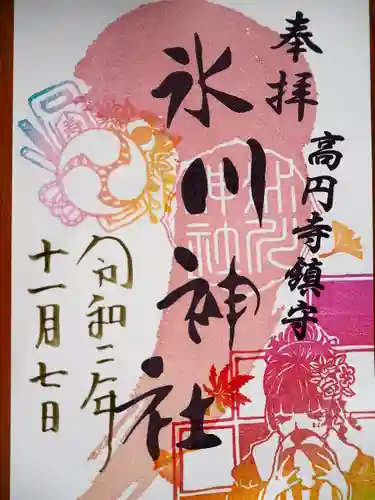 奉拝
高円寺鎮守
氷川神社
令和二年
十一月七日